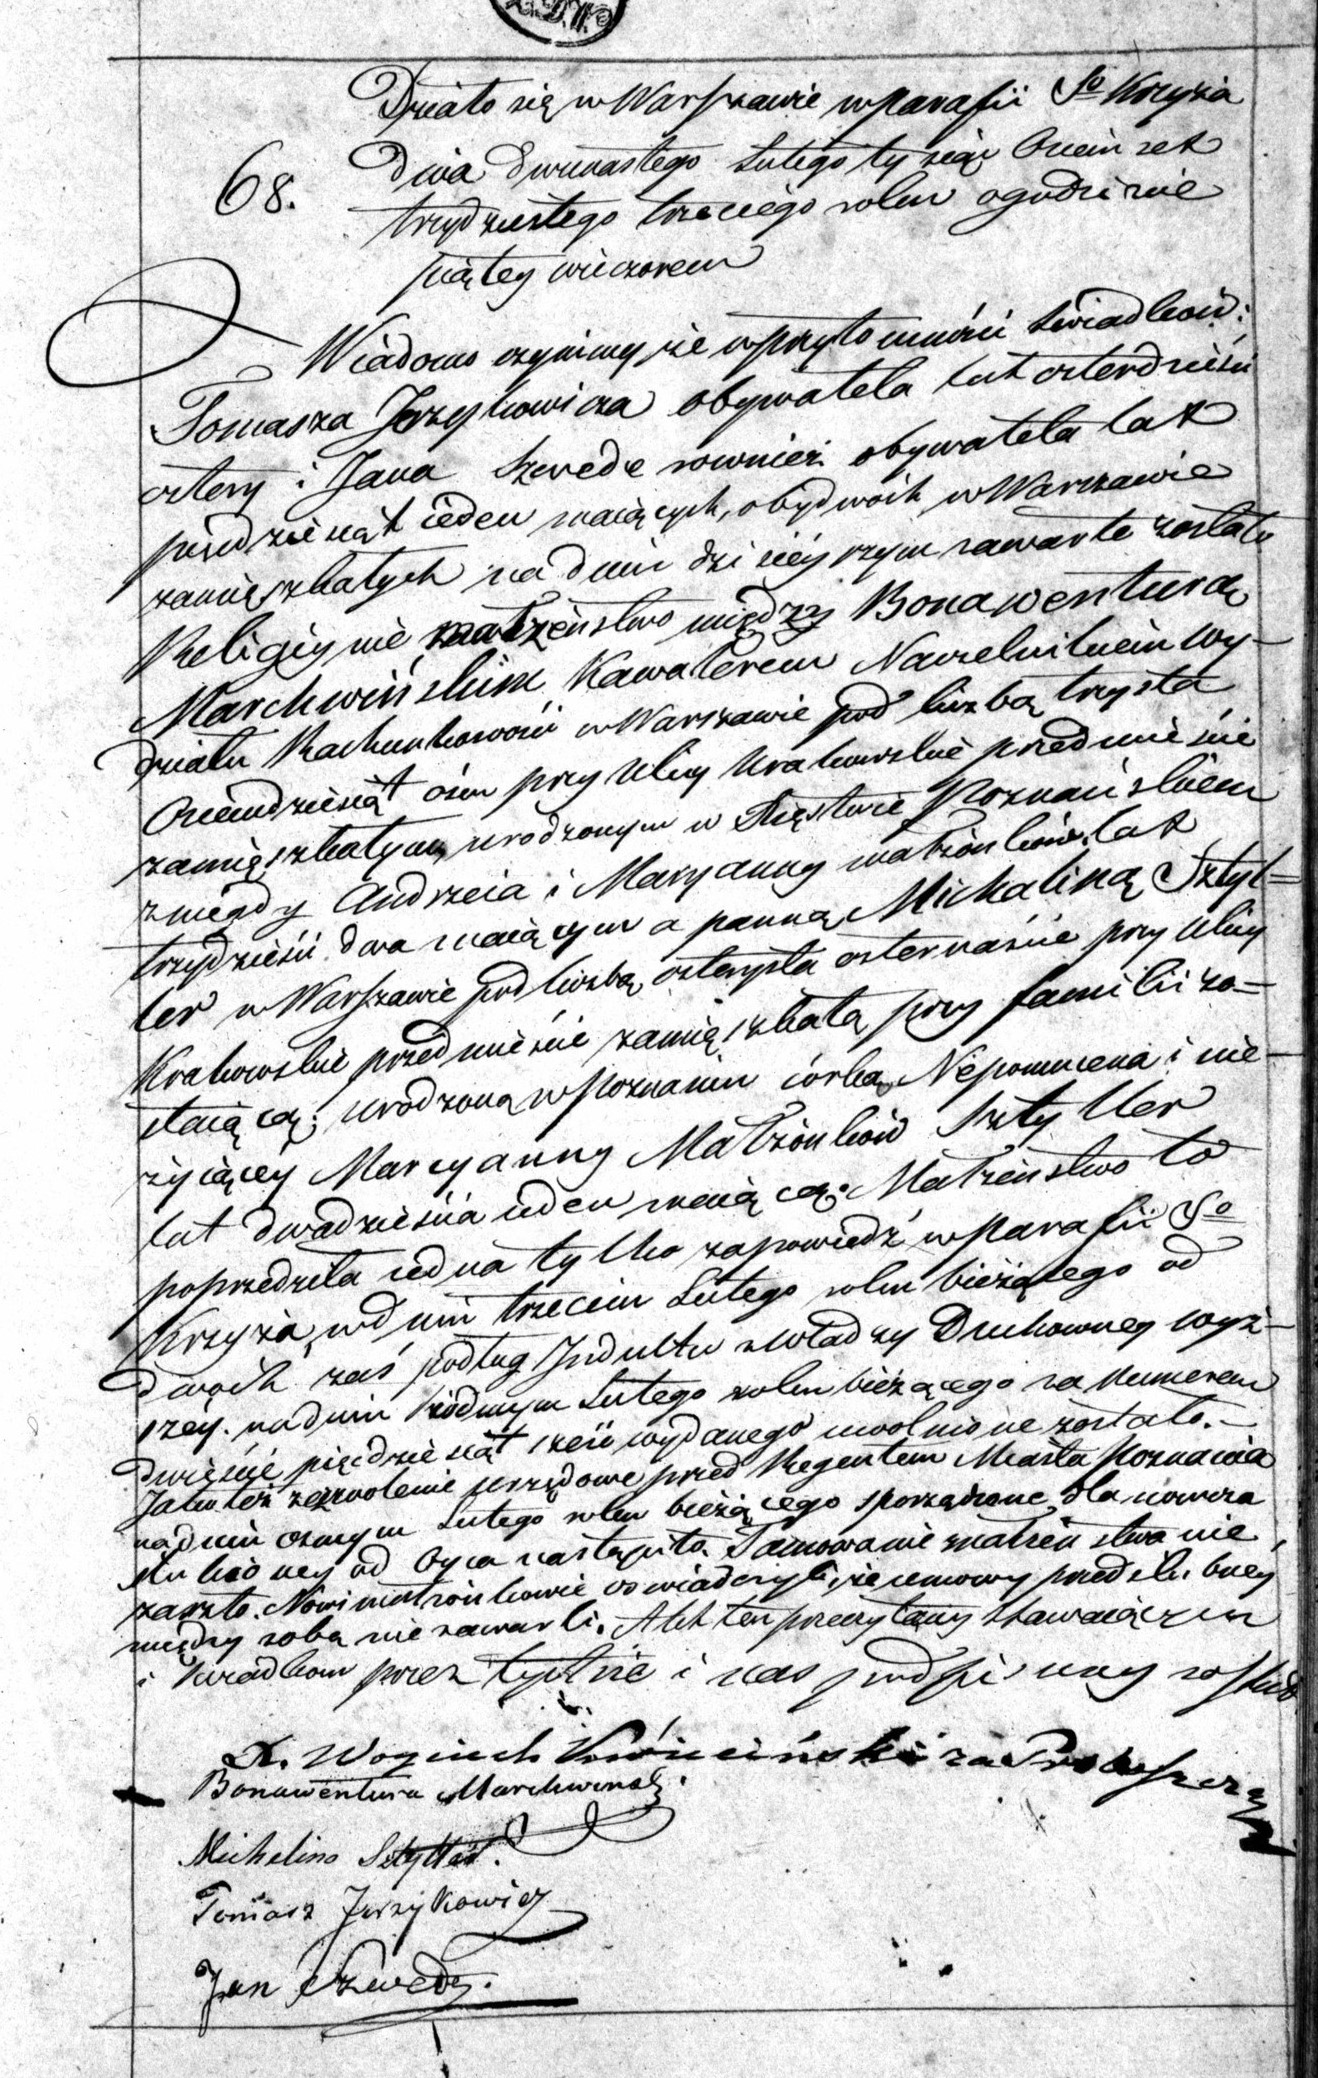 Działo się w Warszawie w Parafii Sgo Krzyża
68.
Dnia Dwunastego Lutego tysiąc Ośmset
trzydziestego trzeciego roku o godzinie
piątey wieczorem
Wiadomo czynimy, że w przytomności świadków:
Tomasza Jerzykowicza obywatela lat czterdzieści
cztery i Jana Szwede rownież obywatela lat
pięcdziesiąt ieden maiących, obydwóch w Warszawie
zamięszkałych na dniu dzisieyszym zawarte zostało
Religiynie małżeństwo między Bonawenturą
Marchwińskim Kawalerem Naczelnikiem Wy-
działu Rachunkowości w Warszawie pod liczbą trzysta
Ośmdziesiąt ośm przy Ulicy Krakowskie przedmieście
zamięszkałym, urodzonym w Xięstwie Poznańskiem
z niegdy Andrzeia i Maryanny małżonków, lat
trzydzieści dwa maiącym a panną Michaliną Sztyl=
ler w Warszawie pod liczbą czterysta czternaście przy Ulicy
Krakowskie przedmieście zamięszkałą przy familii zo=
staiącą; urodzoną w Poznaniu córką Nepomucena i nie-
żyiącey Maryanny Małżonków Sztyller
lat dwadzieścia ieden maiącą. Małżeństwo to
poprzedziła iedna tylko zapowiedź w Parafii Sgo
Krzyża, w dniu trzecim Lutego roku bieżącego od
dwóch zaś podług Indultu z Władzy Duchowney wyż-
széy. na dniu siódmym Lutego roku bieżącego za Numerem
dwieście pięćdziesiąt sześć wydanego uwolnione zostało.
Jako też zezwolenie urzędowe przed Regentem Miasta Poznania
na dniu osmym Lutego roku bieżącego sporządzone, dla nowoza
ślubioney od Oyca nastąpiło. Tamowanie małżeństwa nie
zaszło. Nowi małżonkowie oswiadczyli, że umowy przedślubney
między sobą nie zawarli. Akt ten przeczytany stawaiącym
i świadkom przez tychże i nas podpisany został
X. Woyciech za Proboszcza
Bonawentura Marchwinski.
Michalina Sztyller.
Tomasz Jerzykowicz
Jan Szwede.